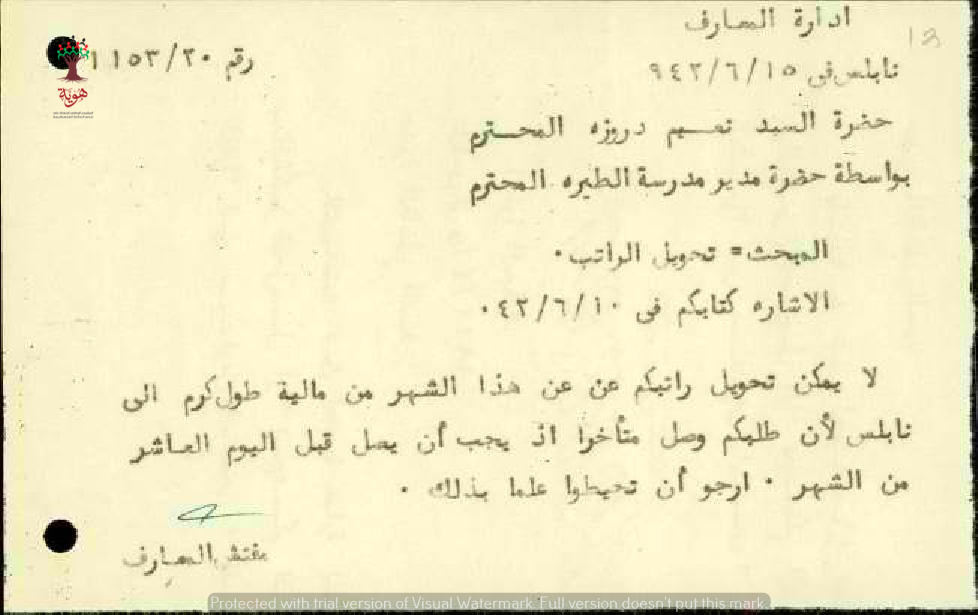 ادارة المعارف
13
رقم ١١٥٣/٢٠
نابلس فى ١٥/٦/٩٤٢
حضرة السيد نعـيم دروزه المحـترم
بواسطة حضرة مدير مدرسة الطيره المحترم
المبحث= تحويل الراتب٠
الاشاره كتابكم فى ١٠/٦/٤٢٠
لا يمكن تحويل راتبكم عن عن هذا الشهر من مالية طولكرم الى
نابلس لأن طلبكم وصل متأخرا اذ يجب أن يصل قبل اليوم العاشر
من الشهر ٠ ارجو أن تحيطوا علما بذلك ٠
مفتش المعارف
هوية
Protected with trial version of Visual Watermark. Full version doesn't put this mark.